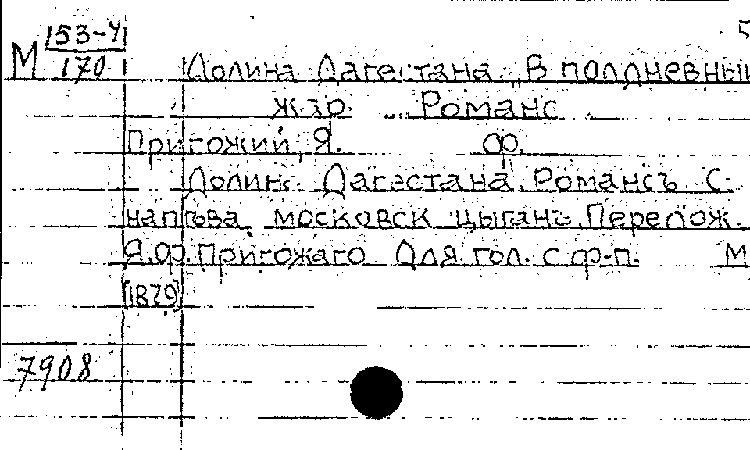 153-4
5
М 170 Долина Дагестана. "В полдневный
жар... Романс
Пригожий, Я. ф.
Долина Дагестана. Романсъ с
напѣва московск цыганъ. Перелож.
Я.Ф.Пригожаго Для гол. с ф-п. М
[1879]
7908